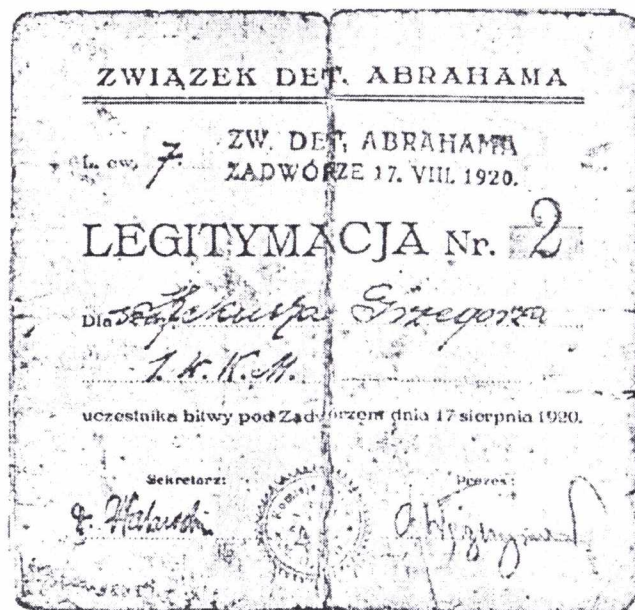 ZWIĄZEK DET. ABRAHAMA
L. ew. 7. ZW. DET. ABRAHAMA
ZADWÓRZE 17. VIII. 1920.
LEGITYMACJA Nr. 2
Dla Grzegorza
1. K. K. M.
uczestnika bitwy pod Zadwórzem dnia 17 sierpnia 1920.
Sekretarz: Prezes: